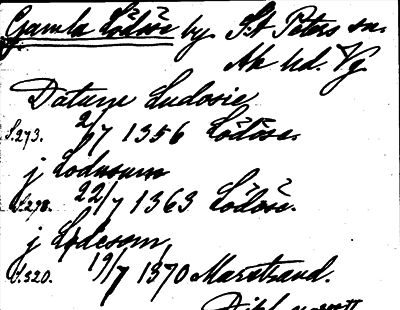 Gamla Lödöse by St Peters sn.
Ale hd. Vg.
Datum Ludosie
S.273. 2/7 1356 Lödöse.
j Lodusum
S.298. 22/7 1363 Lödöse.
j Lodesom,
S.320. 19/7 1370 Marstrand.